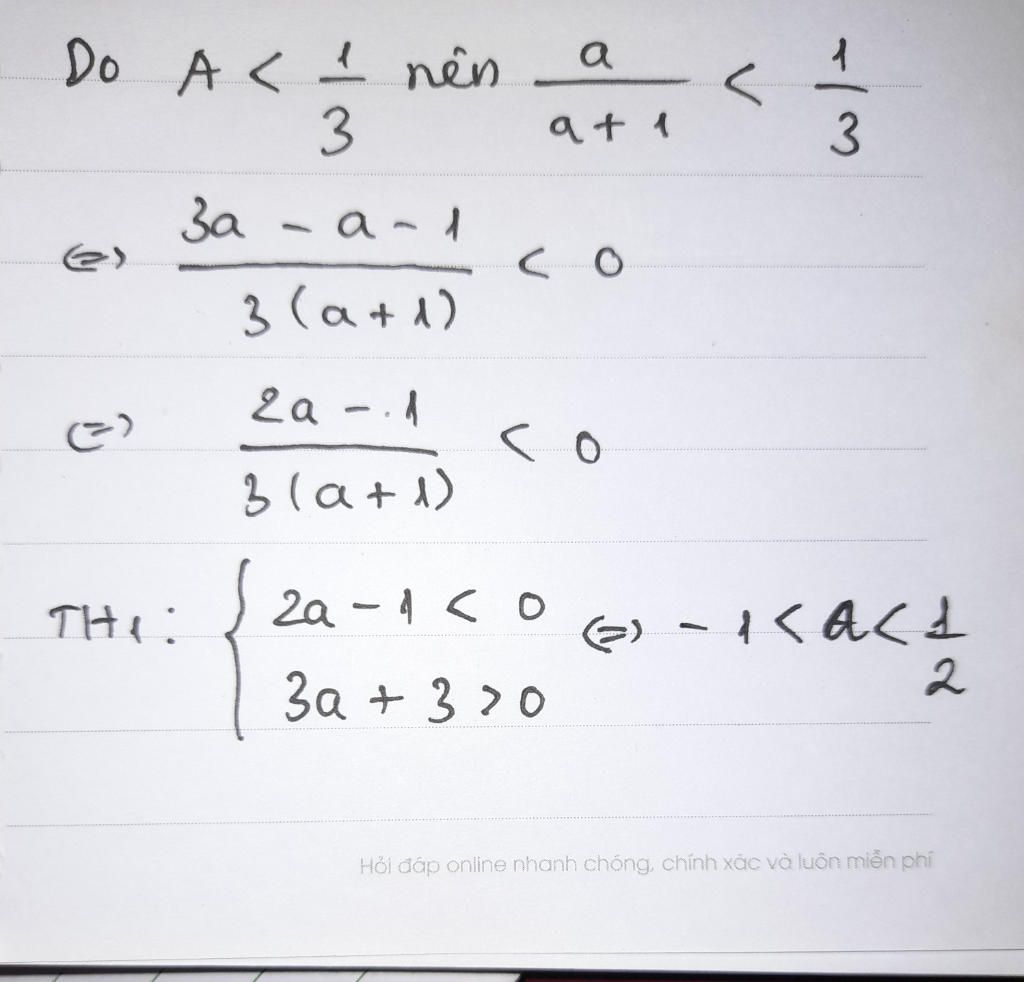 Do A < 1/3 nên a/(a+1) < 1/3
⇔ (3a - a - 1)/(3(a+1)) < 0
⇔ (2a - 1)/(3(a+1)) < 0
TH1: { 2a - 1 < 0
3a + 3 > 0 ⇔ -1 < a < 1/2
Hỏi đáp online nhanh chóng, chính xác và luôn miễn phí